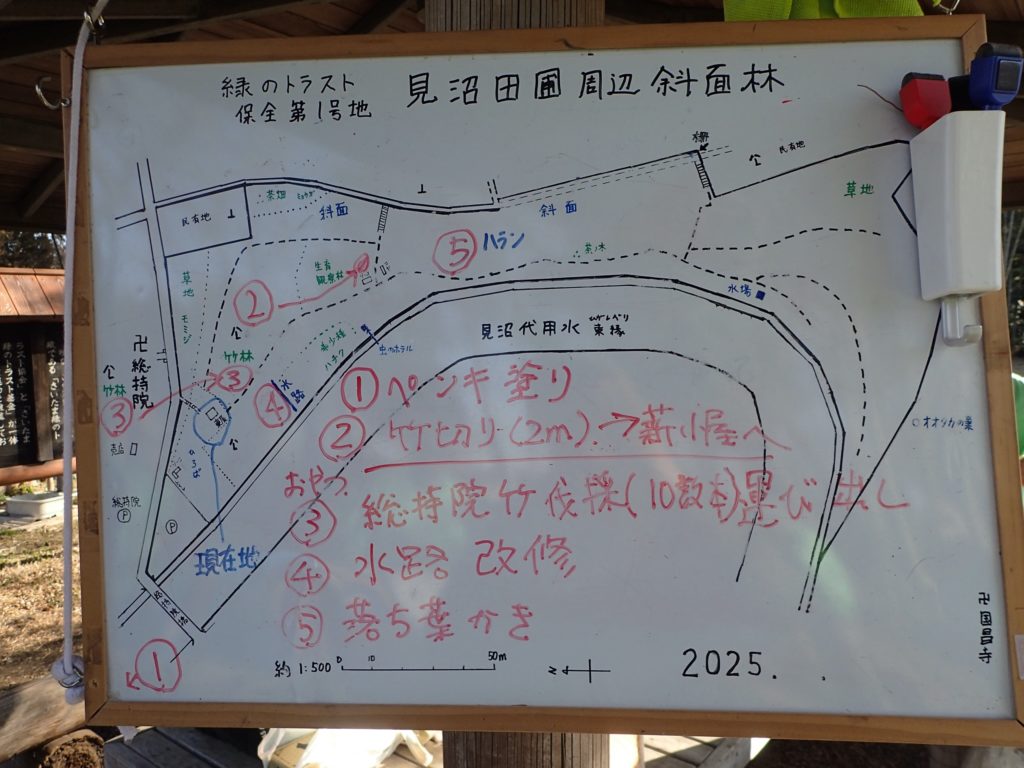 緑のトラスト
保全第1号地
見沼田圃周辺斜面林
柵
民有地
茶畑
ミョウガ
斜面
民有地
斜面
草地
⑤
ハラン
茶ノ木
生育
観察林
②
草地
モミジ
水場
見沼代用水 東縁
竹林
希少種
ハチク
虫のホテル
卍総持院
竹林
③
③
④
水路
① ペンキ塗り
② 竹切り(2m).→薪小屋へ
オオタカの巣
売店
おやつ
③ 総持院竹伐採(10数本)運び出し
総持院
P
P
現在地
④ 水路 改修
⑤ 落ち葉かき
卍国昌寺
①
約1:500
0 10 50m
N
2025.